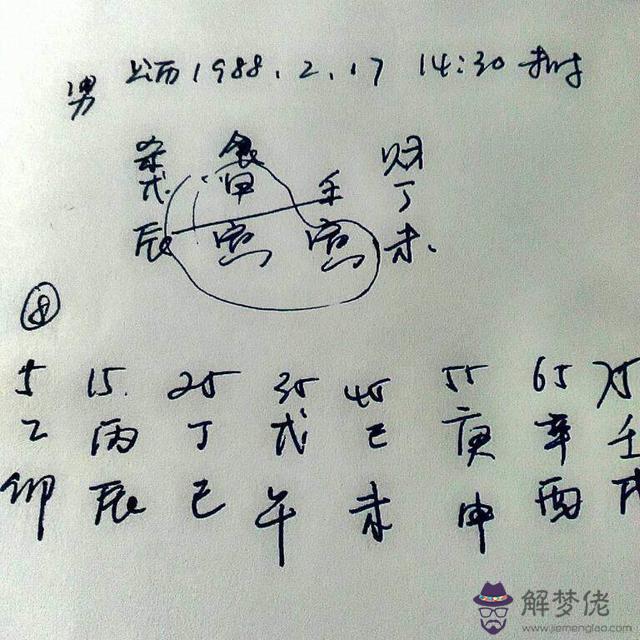 男 1988.2.17 14:30
杀 食 财
戊 甲 壬 丁
辰 寅 寅 未.
⑧
5 15. 25 35 45 55 65 75
乙 丙 丁 戊 己 庚 辛 壬
卯 辰 巳 午 未 申 酉 戌
解梦佬
www.jiemenglao.com